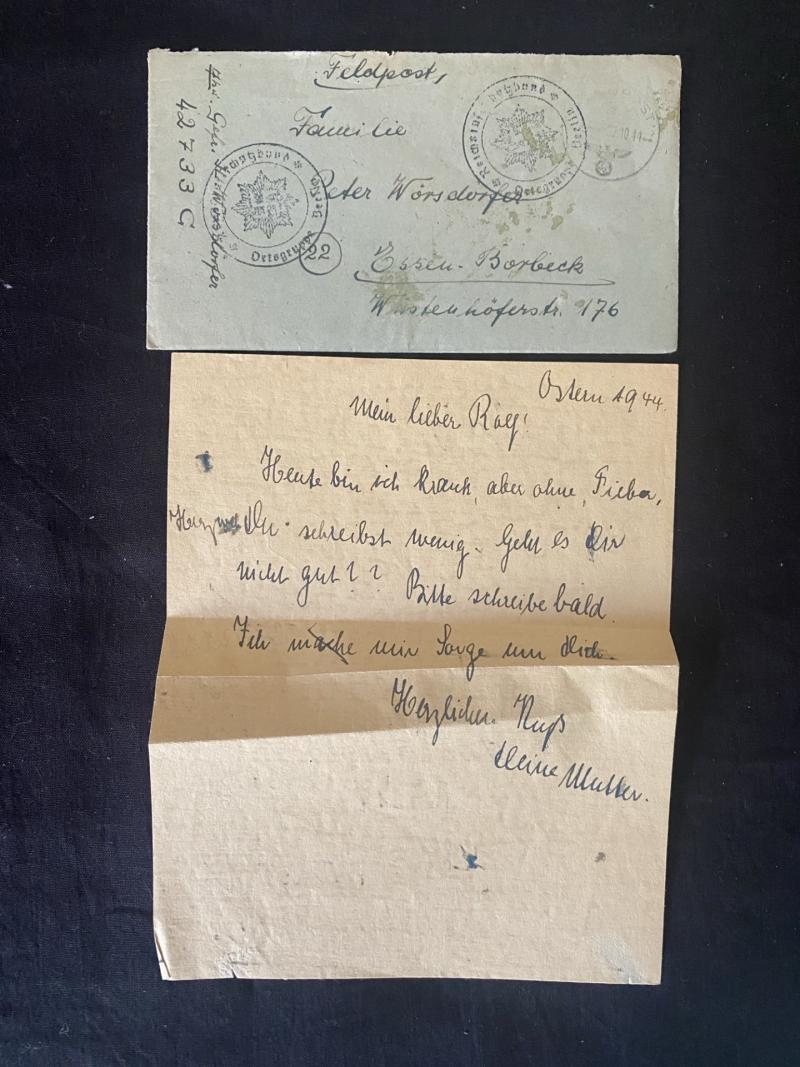 Feldpost,
Familie
Peter Wörsdorfer
22
Essen-Borbeck
Wüstenhöferstr. 176
Abs. Gefr. Wörsdorfer
42733 C
Reichsluftschutzbund
Ortsgruppe
Reichsluftschutzbund
Ortsgruppe
Ostern 1944.
Mein lieber Rolf!
Heute bin ich krank, aber ohne Fieber,
Herzweh Du schreibst wenig. Geht es Dir
nicht gut?? Bitte schreibe bald.
Ich mache mir Sorge um Dich.
Herzlichen Kuß
Deine Mutter.